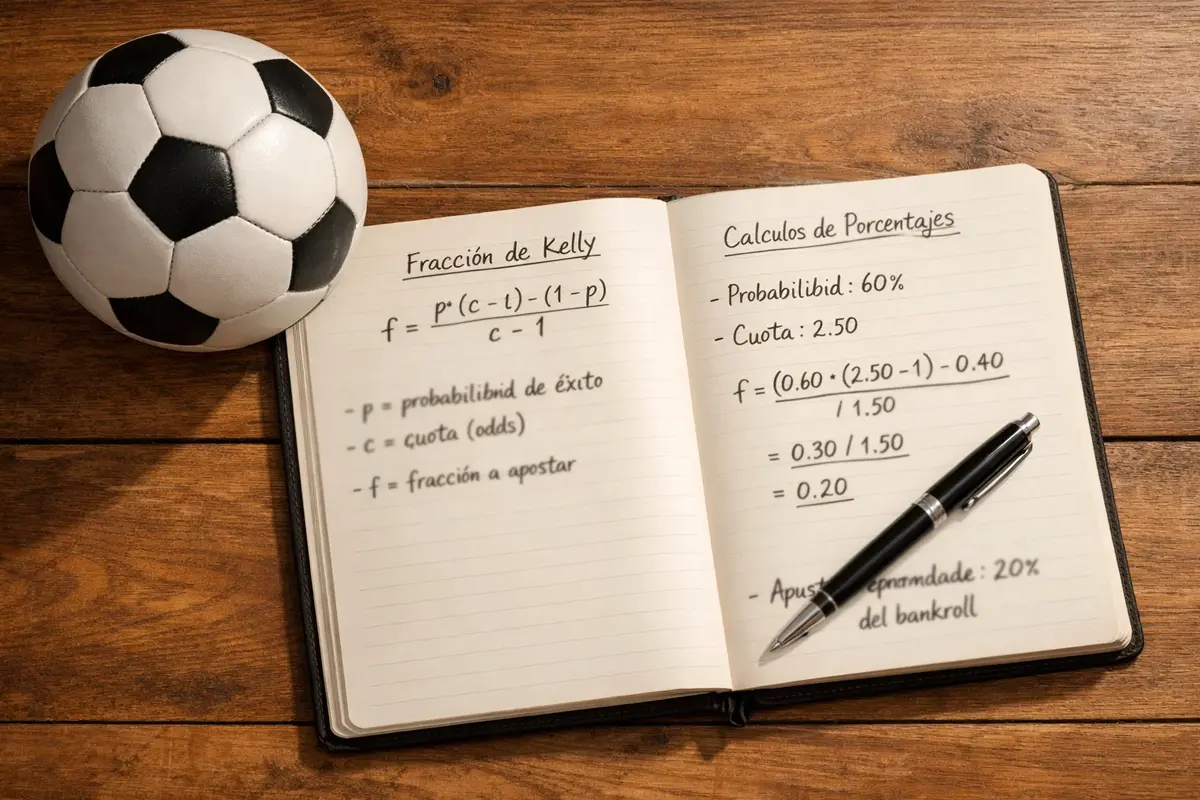 Fracción de Kelly
f = p• (c - t) - (1 - p)
c - 1
- p = probabilibnid de éxito
- c = cuota (odds)
- f = fracción a apostar
Calculos de Porcentajes
- Probabilibid : 60%
- Cuota : 2.50
f = (0.60 • (2.50 - 1) - 0.40
/ 1.50
= 0.30 / 1.50
= 0.20
- : 20%
del bankroll